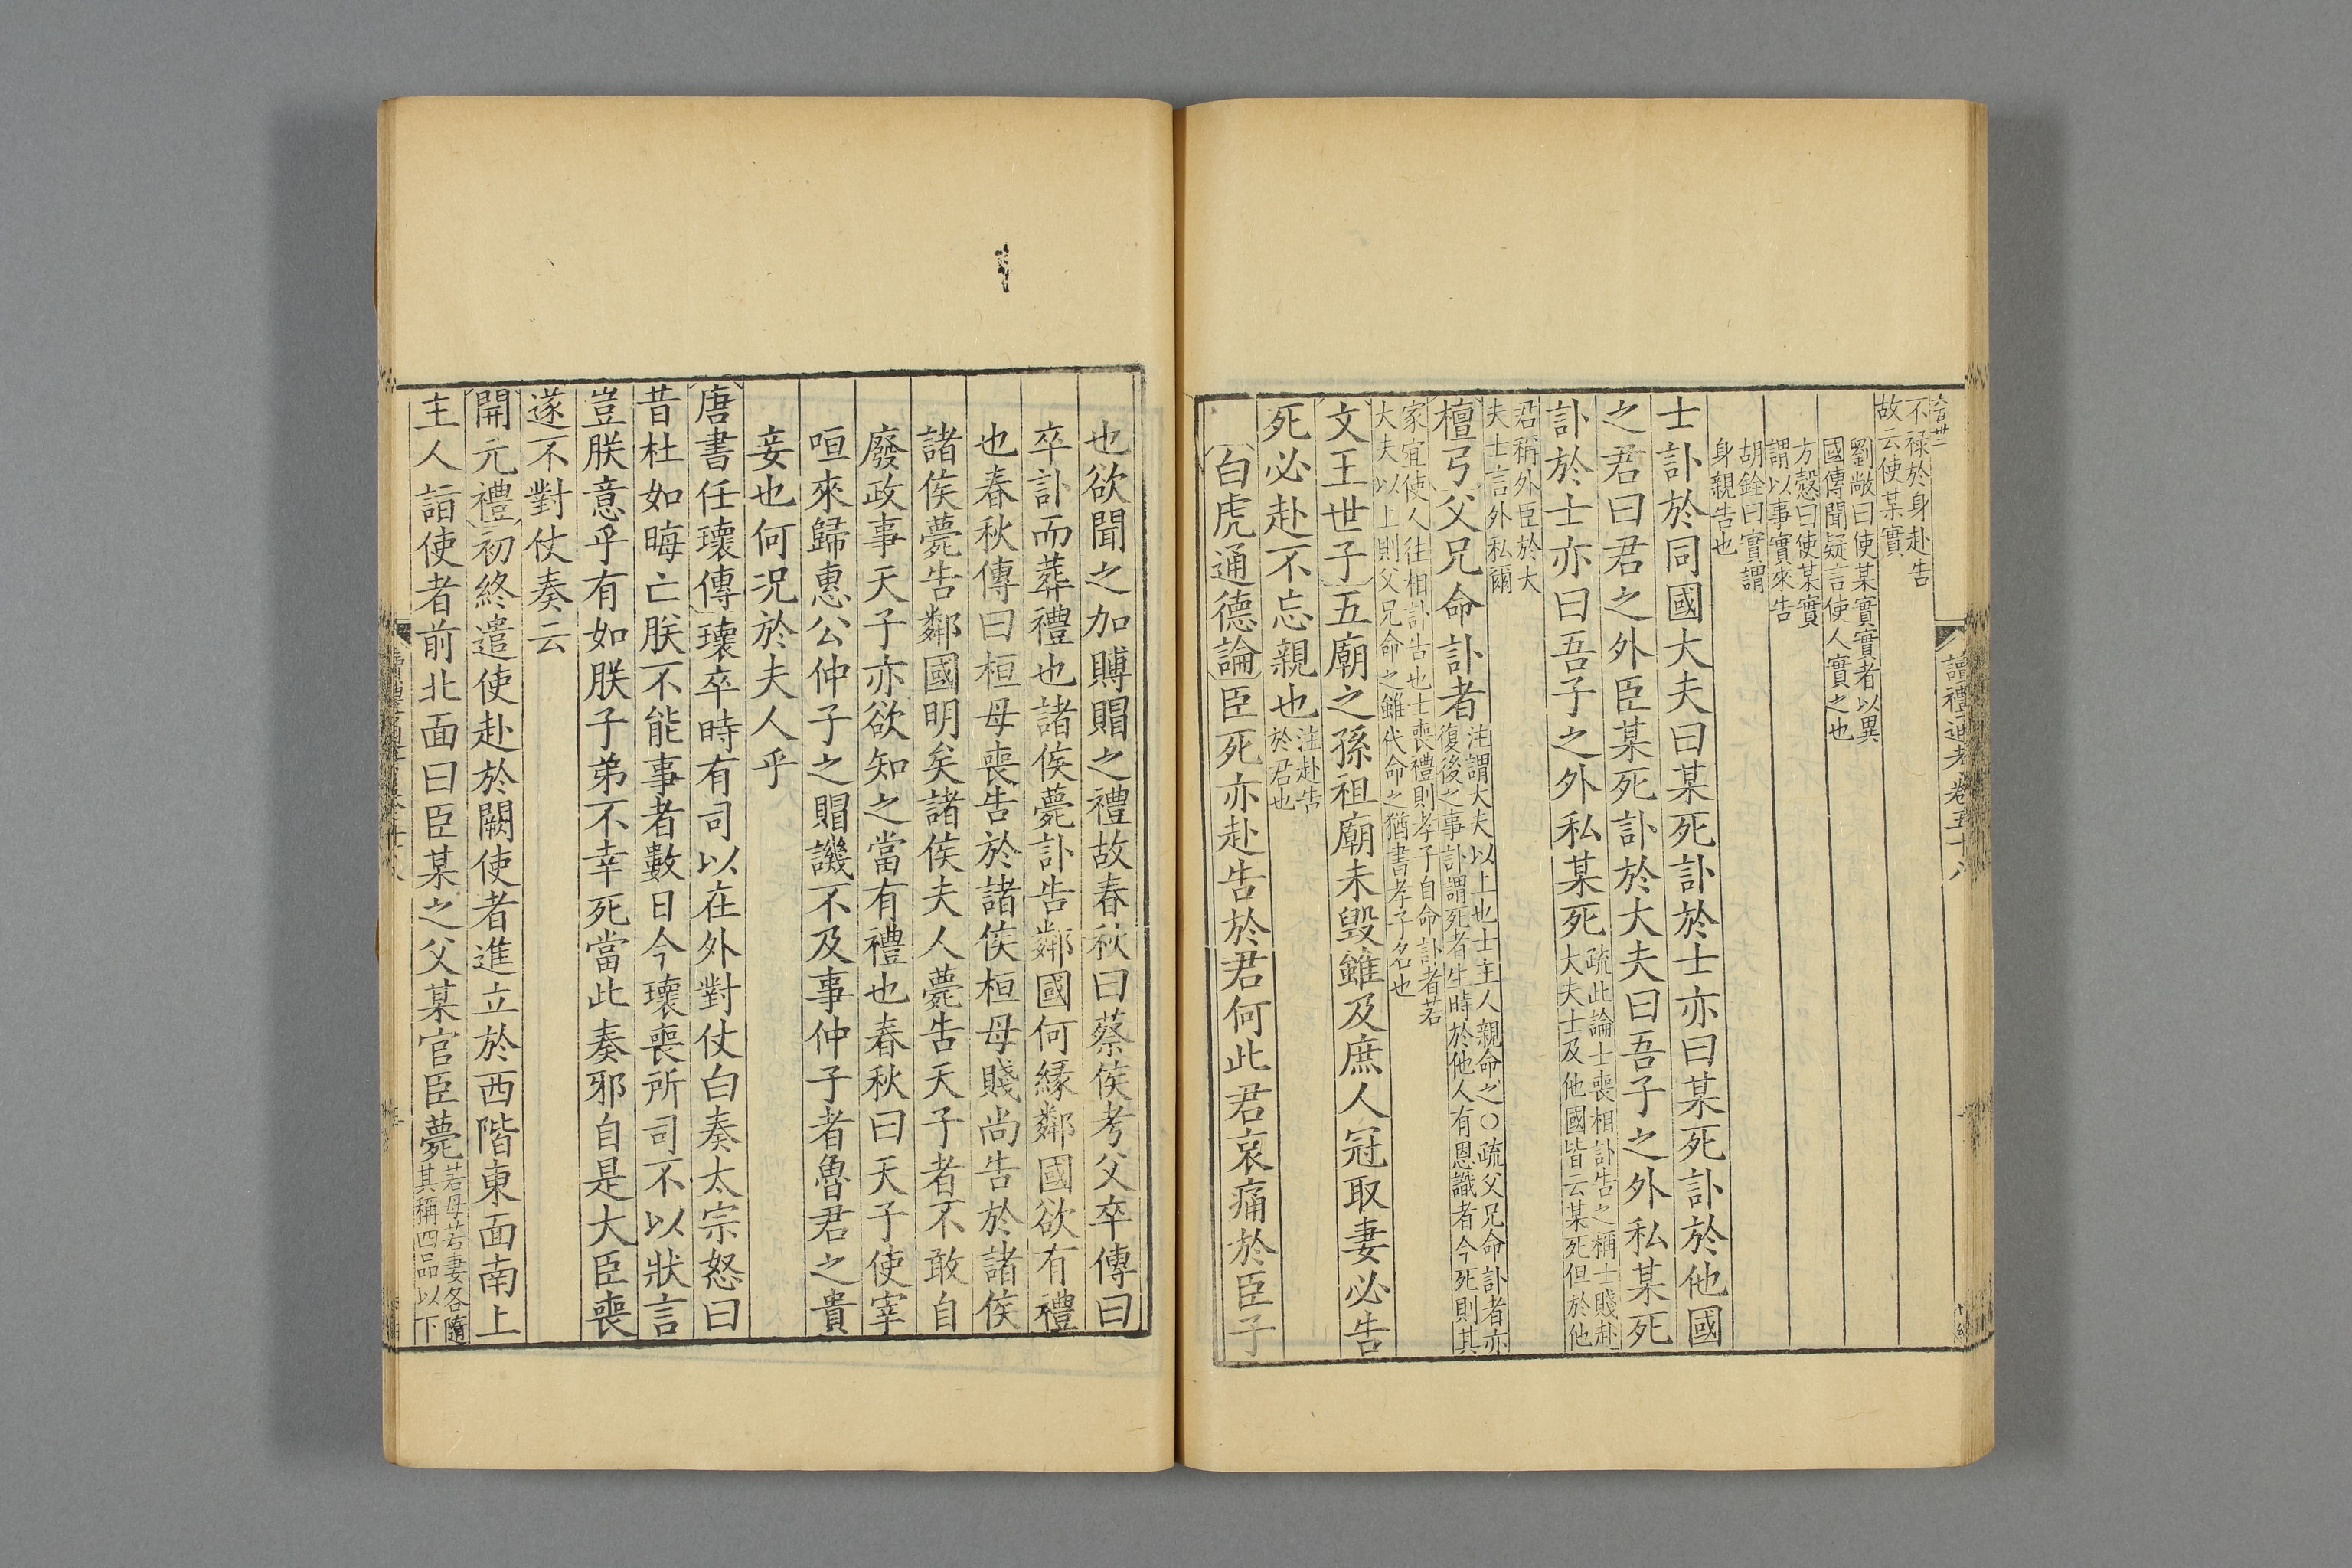 不禄於身赴告
故云使某實
劉敞曰使某實實者以異
國傳聞疑言使人實之也
方慤曰使某實
謂以事實來告
胡銓曰實謂
身親告也
士訃於同國大夫曰某死訃於士亦曰某死訃於他國
之君曰君之外臣某死訃於大夫曰吾子之外私某死
訃於士亦曰吾子之外私某死
疏此論士喪相訃告之稱士賤赴
大夫士及他國皆云某死但於他
君稱外臣於大
夫士言外私爾
檀弓父兄命訃者
注謂大夫以上也士主人親命之○疏父兄命訃者亦
復後之事訃謂死者生時於他人有恩識者今死則其
家宜使人往相訃告也士喪禮則孝子自命訃者若
大夫以上則父兄命之雖代命之猶書孝子名也
文王世子五廟之孫祖廟未毁雖及庶人冠取妻必告
死必赴不忘親也
注赴告
於君也
白虎通德論臣死亦赴告於君何此君哀痛於臣子
讀禮通考卷五十八
也欲聞之加賻賵之禮故春秋曰蔡侯考父卒傳曰
卒訃而葬禮也諸侯薨訃告鄰國何緣鄰國欲有禮
也春秋傳曰桓母喪告於諸侯桓母賤尚告於諸侯
諸侯薨告鄰國明矣諸侯夫人薨告天子者不敢自
廢政事天子亦欲知之當有禮也春秋曰天子使宰
咺來歸惠公仲子之賵譏不及事仲子者魯君之貴
妾也何況於夫人乎
唐書任瓌傳瓌卒時有司以在外對仗白奏太宗怒曰
昔杜如晦亡朕不能事者數日今瓌喪所司不以狀言
豈朕意乎有如朕子弟不幸死當此奏邪自是大臣喪
遂不對仗奏云
開元禮初終遣使赴於闕使者進立於西階東面南上
主人詣使者前北面曰臣某之父某官臣薨
若母若妻各隨
其稱四品以下